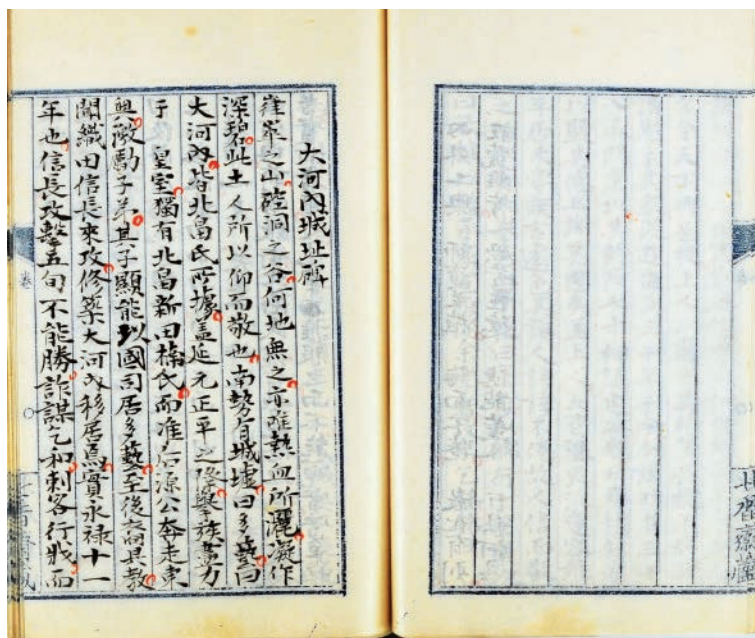 大河內城址碑
崔崒之山硿洞之谷何地無之亦唯熱血所灑凝作
深碧此土人所以仰而敬也南勢有城墟曰多藝曰
大河內皆北畠氏所墟盖延元正平之際擧族盡力
于 皇室獨有北畠新田楠氏而准后源公奔走東
奥激勵子弟其子顯能以國司居多藝至後裔具教
聞織田信長來攻修築大河內移居焉實永禄十一
年也信長攻擊五旬不能勝詐謀乞和刺客行戕而
卷